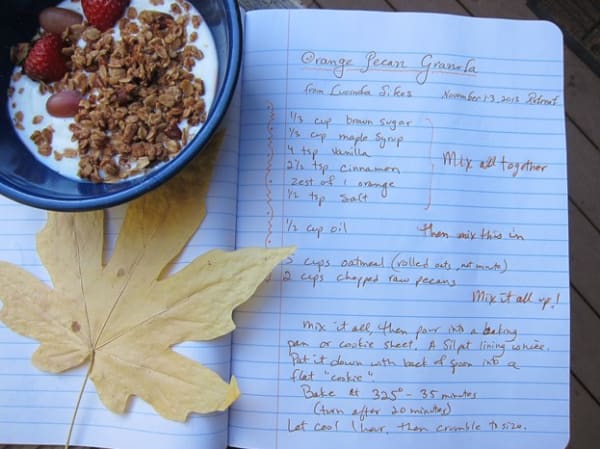 Orange Pecan Granola
from Lucinda Sikes November 1-3, 2013 Retreat
1/3 cup brown sugar
1/3 cup maple syrup
4 tsp vanilla
2 1/2 tsp cinnamon
zest of 1 orange
1/2 tsp salt
Mix all together
1/2 cup oil then mix this in
cups oatmeal (rolled oats, not minute)
2 cups chopped raw pecans
Mix it all up!
Mix it all, then pour into a baking
pan or cookie sheet. A Silpat lining is nice.
Pat it down with back of spoon into a
flat "cookie".
Bake at 325° - 35 minutes
(turn after 20 minutes)
Let cool 1 hour, then crumble to size.